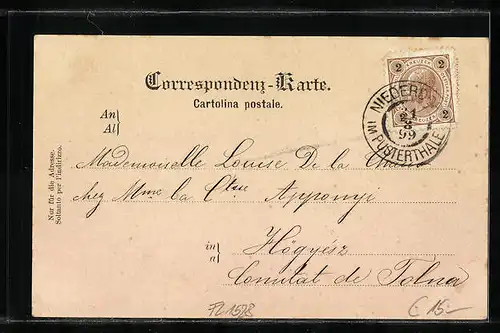 Correspondenz-Karte.
Cartolina postale.
2 KREUZER 2
NIEDERD
21
99
IM PUSTERTHALE
An
Al
Mademoiselle Louise De la
chez Mme la Ctsse Apponyi
in
a
Högyész
Comitat de Tolna
Nur für die Adresse.
Soltanto per l'indirizzo.
FL 1528
€ 15.-